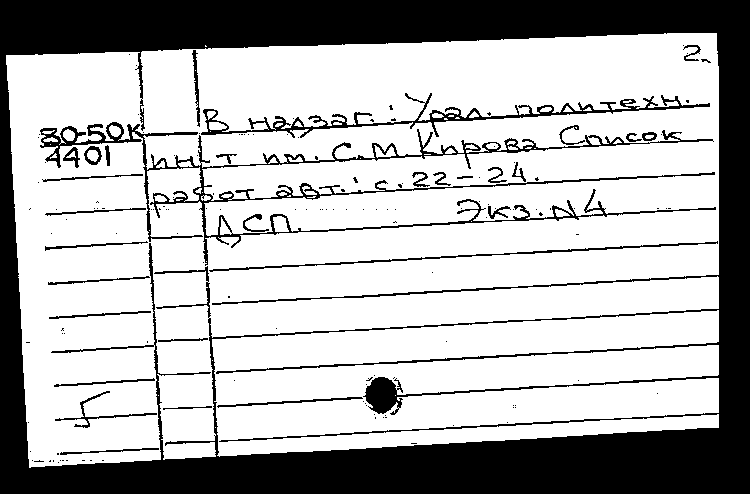 2.
80-50К В надзаг.: Урал. политехн.
4401 ин-т им. С.М. Кирова Список
работ авт.: с. 22-24.
ДСП. Экз. N4